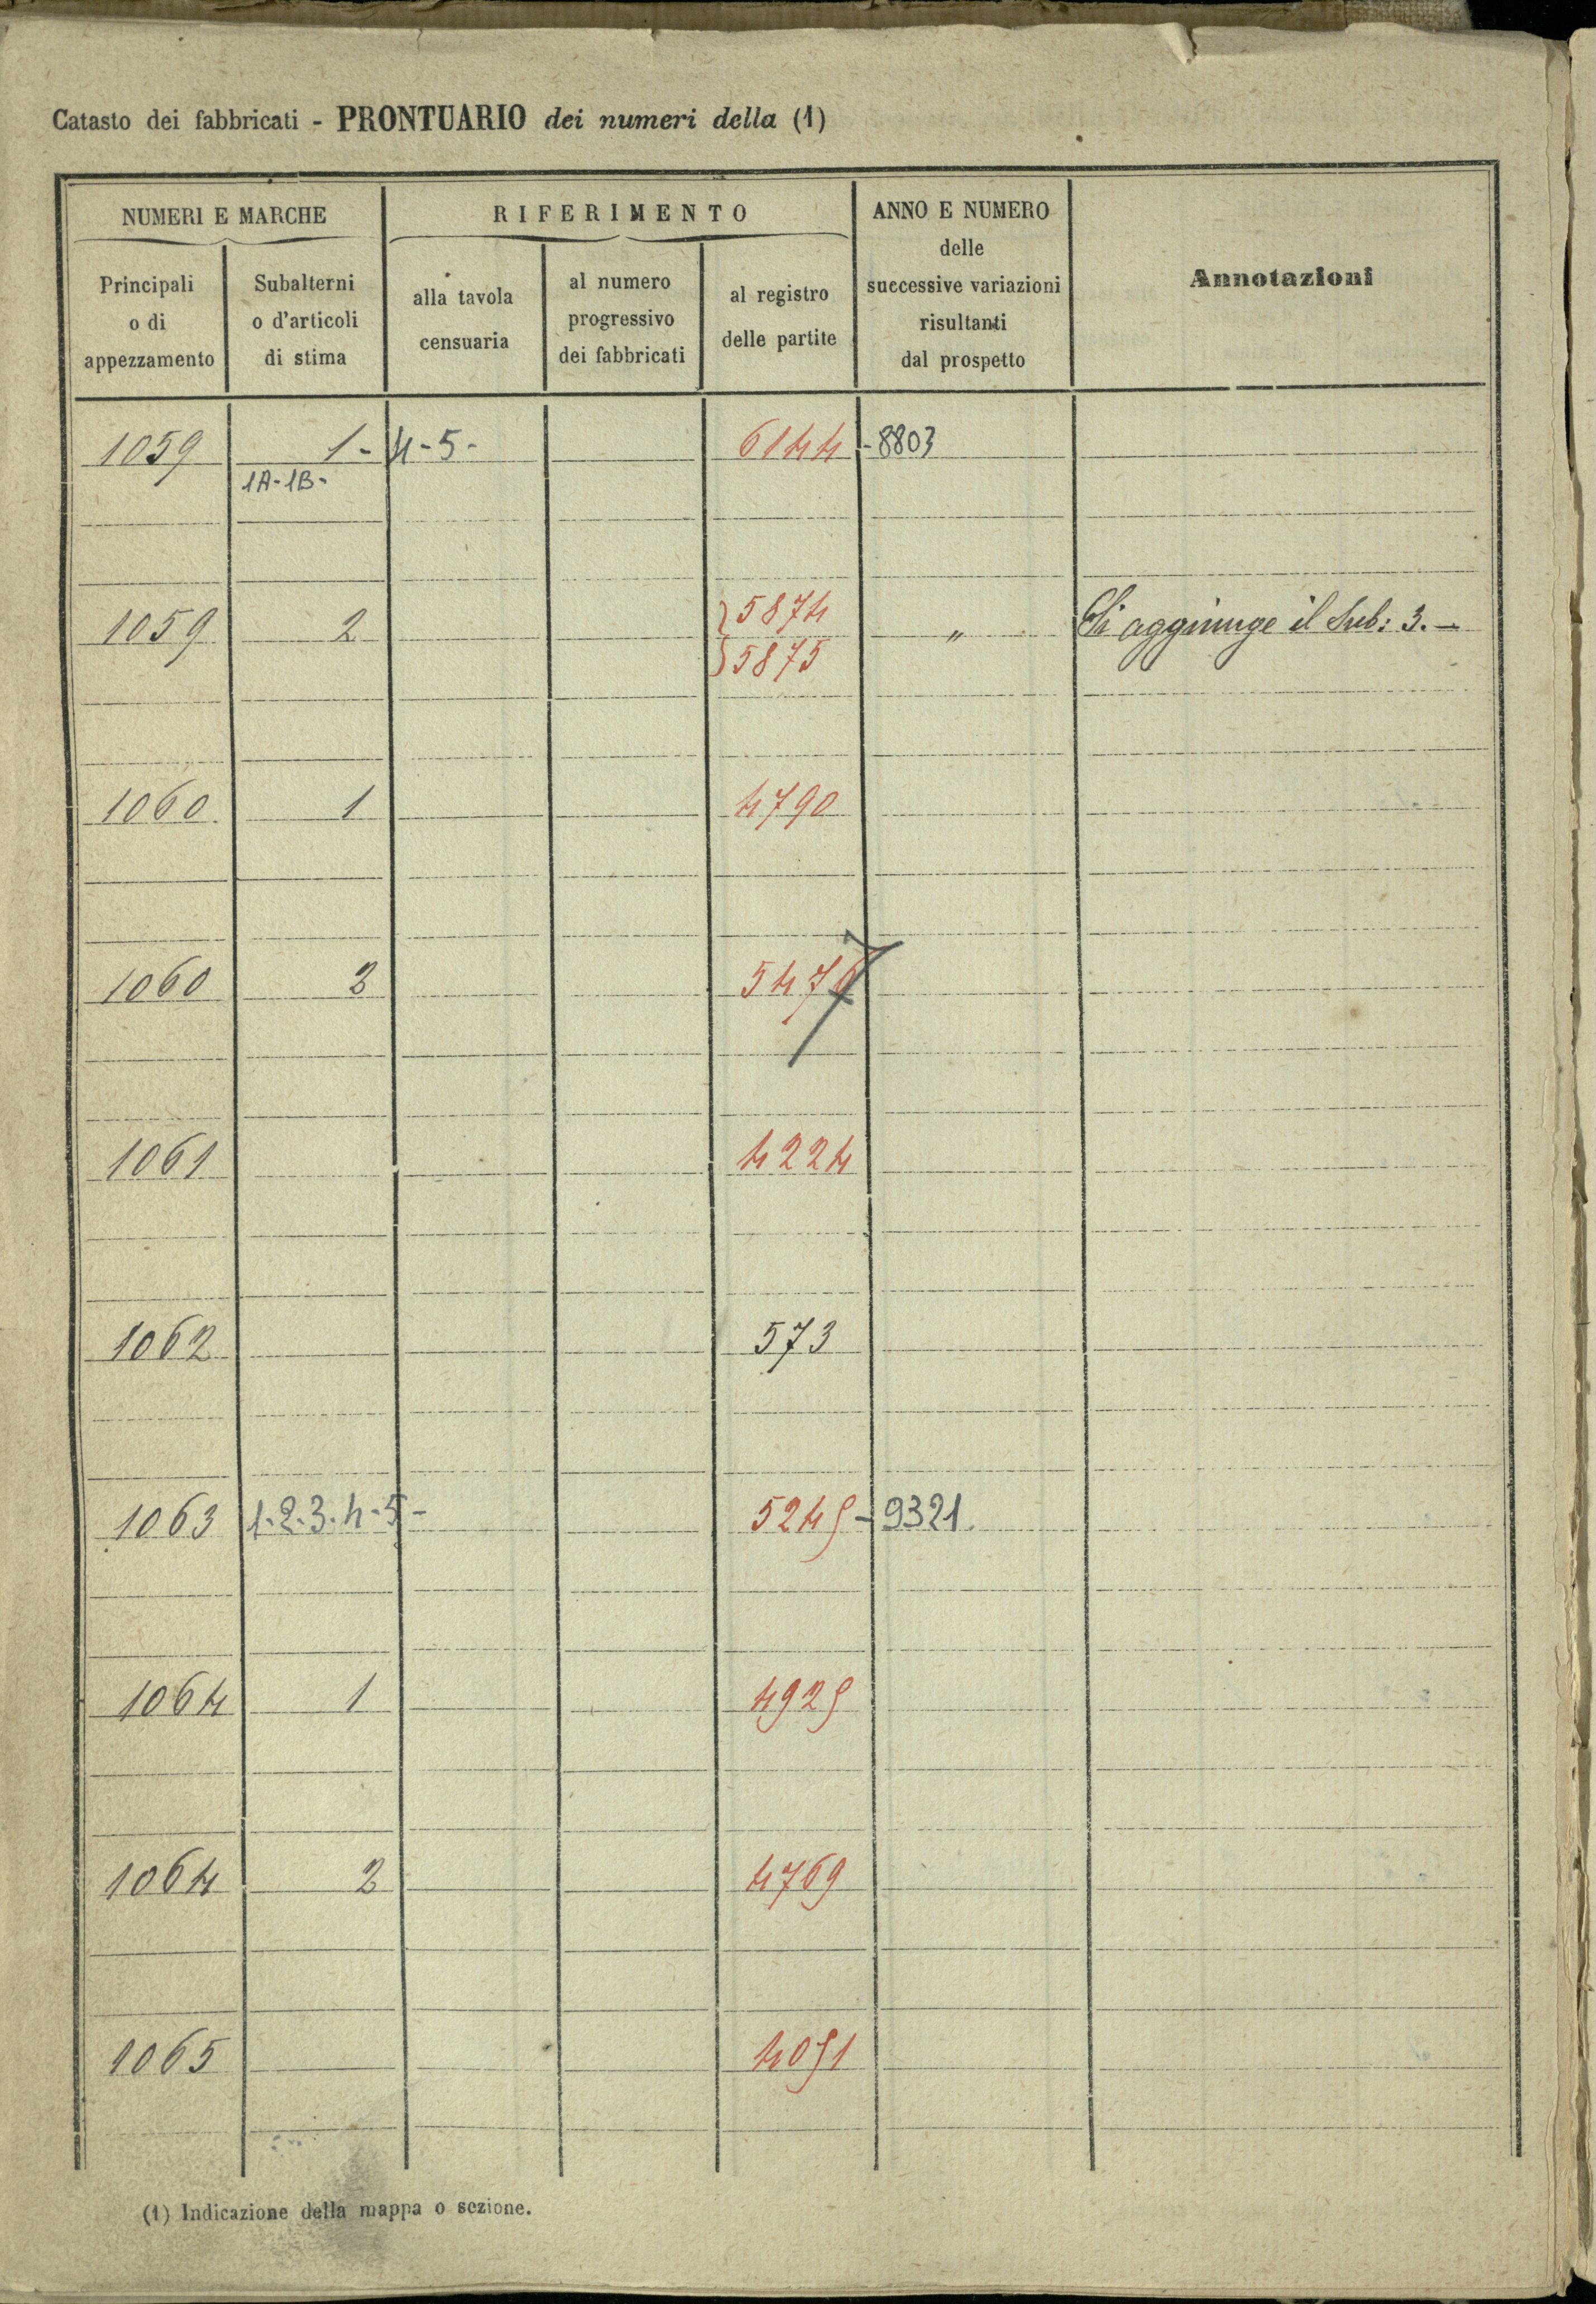 Catasto dei fabbricati - PRONTUARIO dei numeri della (1)
NUMERI E MARCHE
RIFERIMENTO
ANNO E NUMERO
delle
successive variazioni
risultanti
dal prospetto
Annotazioni
Principali
o di
appezzamento
Subalterni
o d'articoli
di stima
alla tavola
censuaria
al numero
progressivo
dei fabbricati
al registro
delle partite
1059 1-4-5- 6144-8803
1A-1B-
5874
1059 2 " Si aggiunge il Sub: 3.-
5875
1060. 1 4790
1060 2
1061 4224
1062 573
1063 1-2-3-4-5- 5245-9321.
1064 1 4925
1064 2 4769
1065 4051
(1) Indicazione della mappa o sezione.